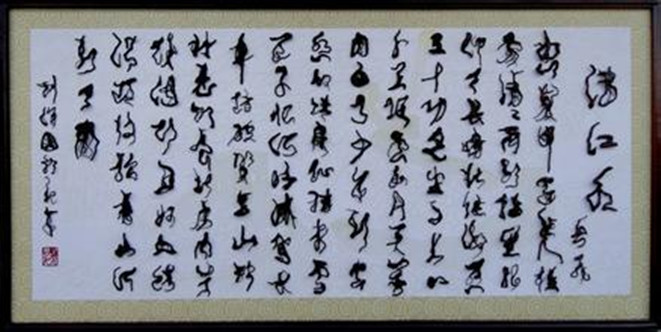 满江红
岳飞
怒发冲冠凭栏
处潇潇雨歇抬望眼
仰天长啸壮怀激烈
三十功名尘与土八
千里路云和月莫等
闲白了少年头空
悲切靖康耻犹未雪
臣子恨何时灭驾长
车踏破贺兰山缺
壮志饥餐胡虏肉笑
谈渴饮匈奴血待
从头收拾旧山河
朝天阙